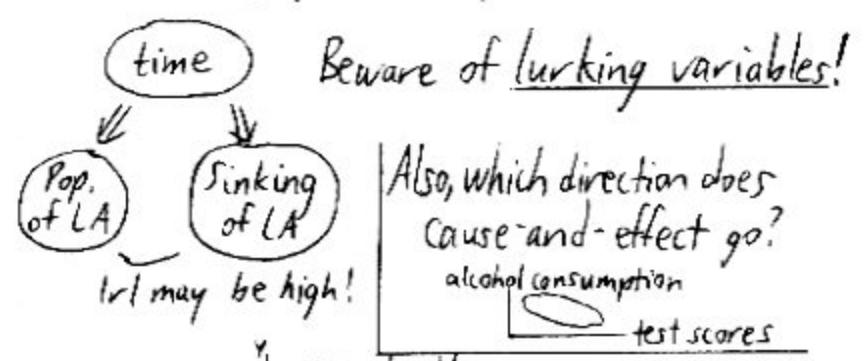 time
Beware of lurking variables!
Pop.
of LA
Sinking
of LA
|r| may be high!
Also, which direction does
cause-and-effect go?
alcohol consumption
test scores